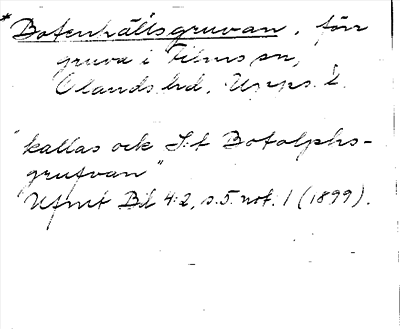 *Botenhällsgruvan, förr
gruva i Films sn,
Olands hd, Upps. l.
"kallas ock S:t Botolphs-
grufvan"
Ufmt Bd 4:2, s. 5 not. 1 (1899).